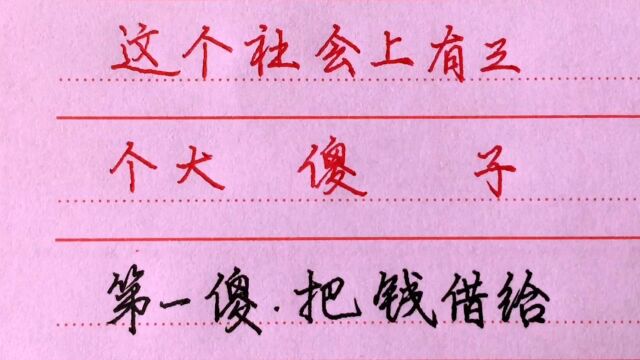 这个社会上有三
个大 傻 子
第一傻.把钱借给